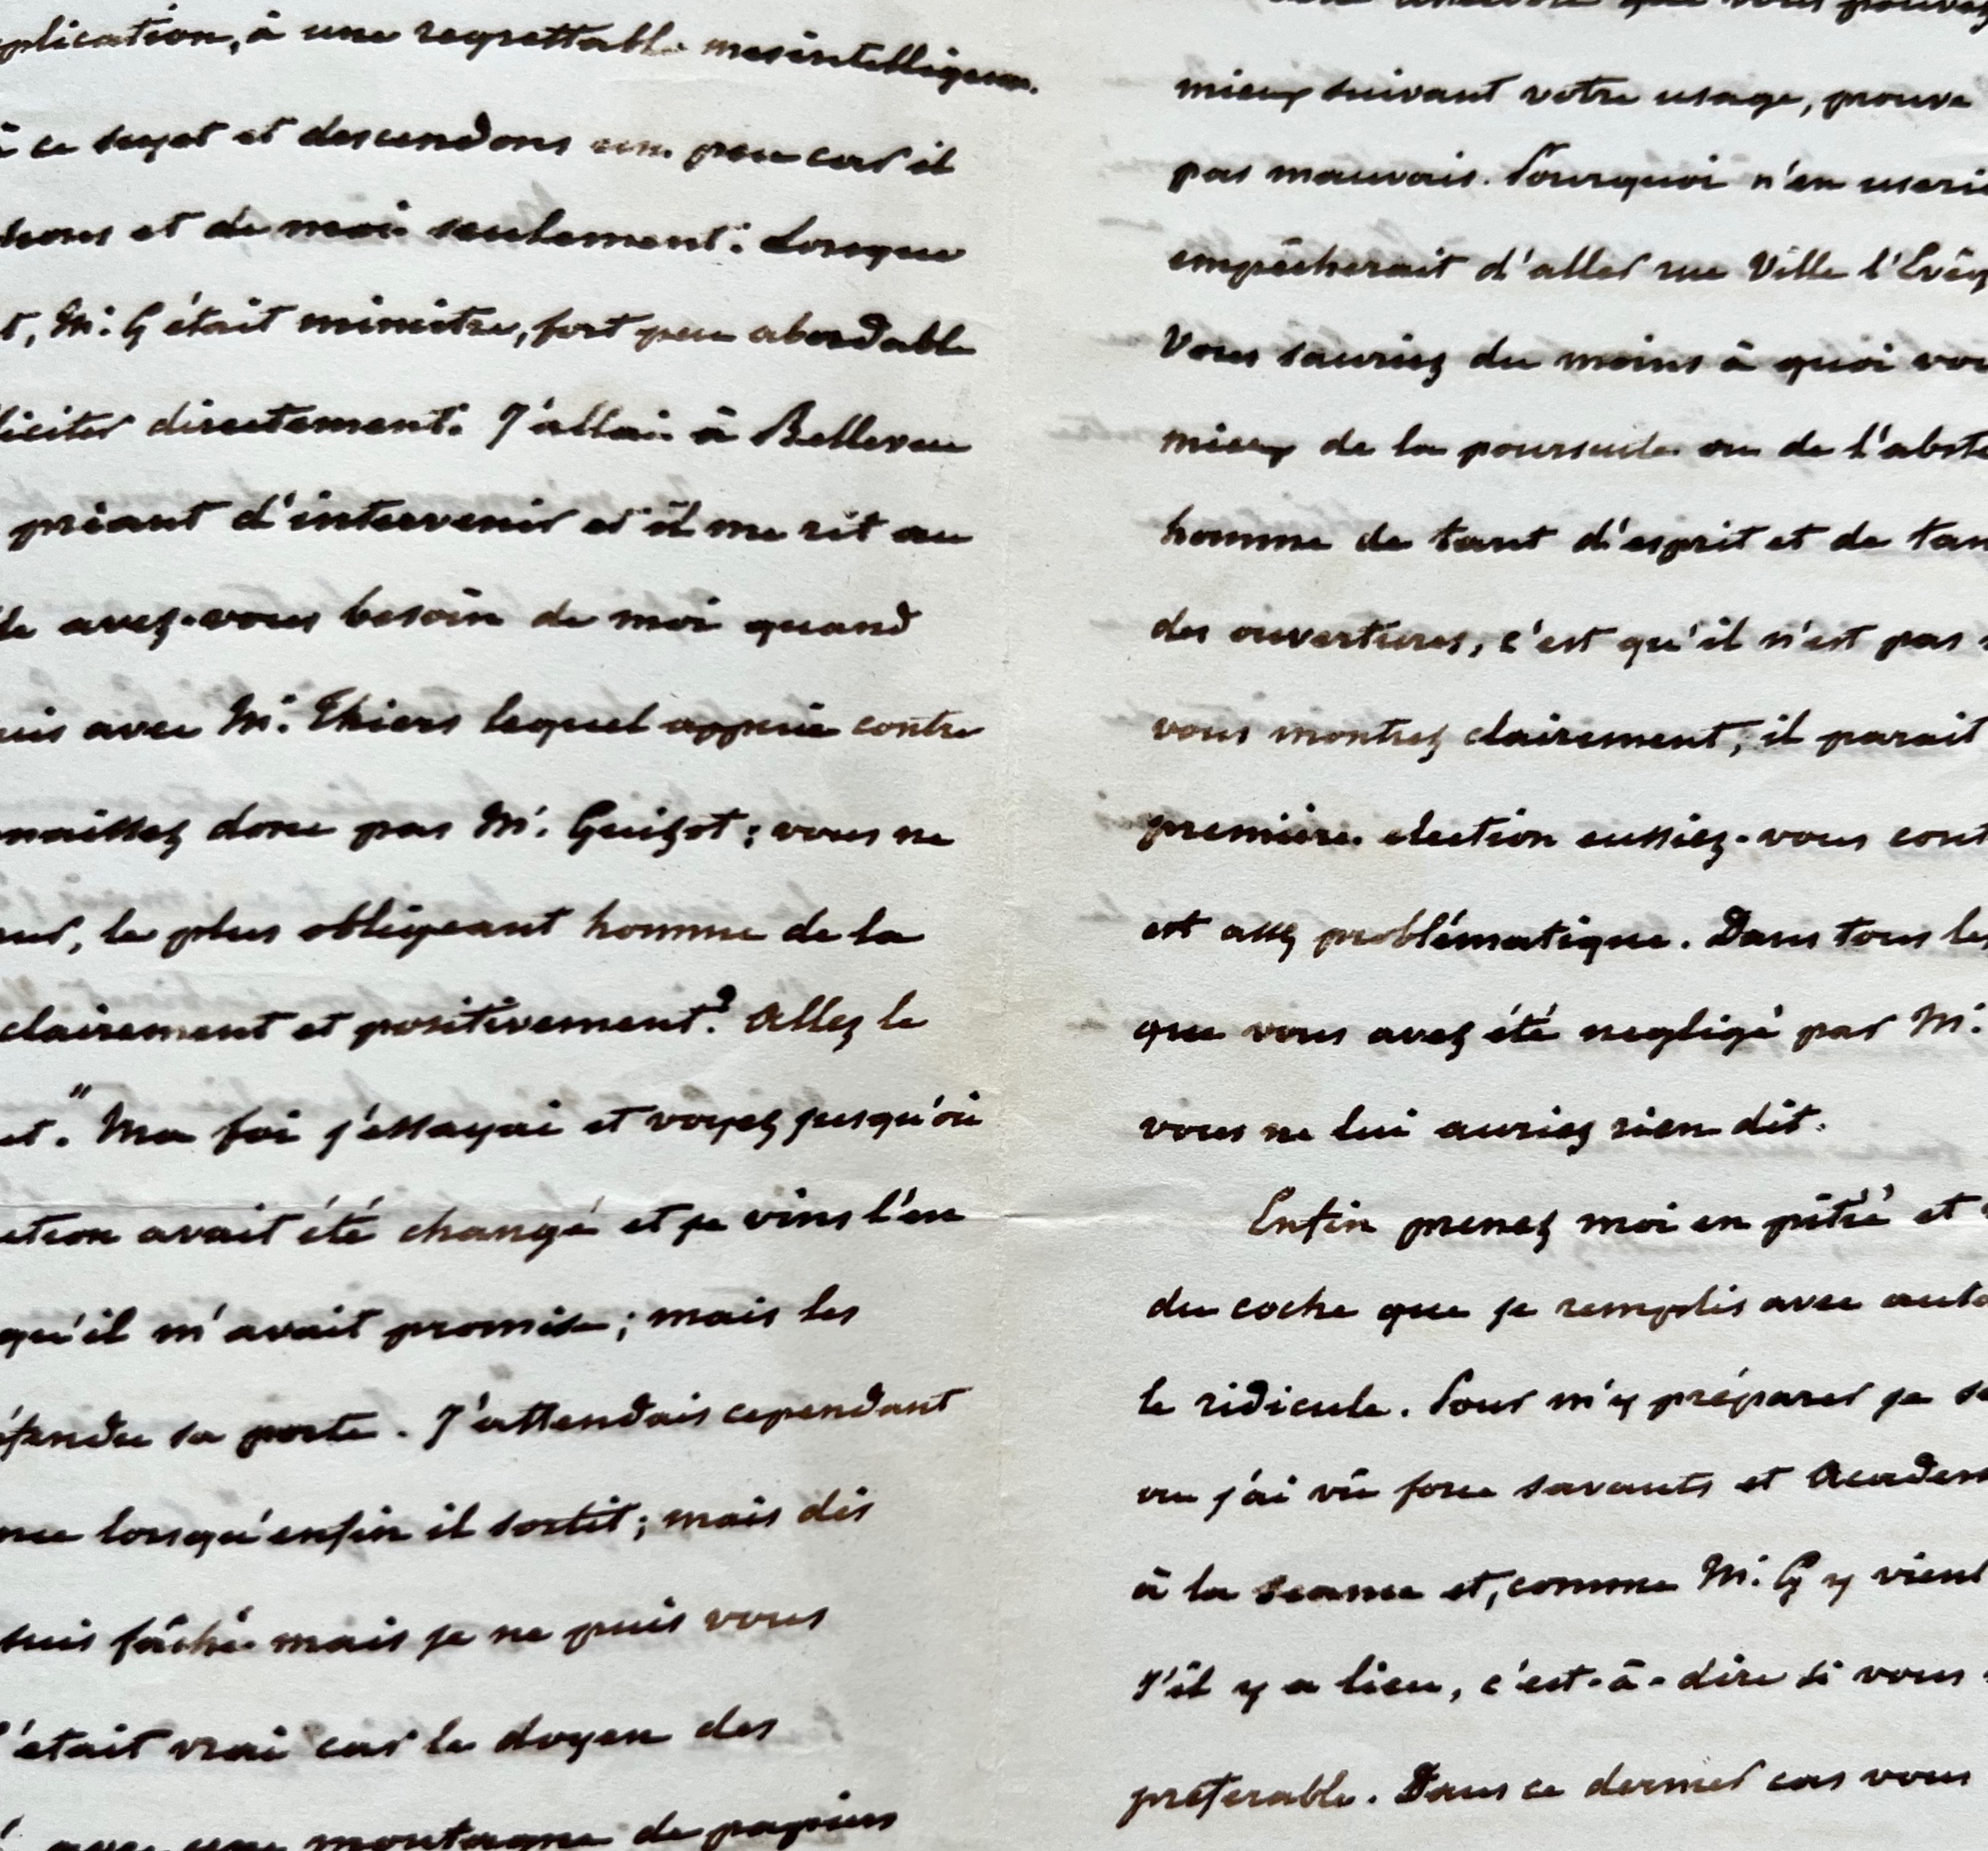 plication, à une regrettable mesintelligence.
à ce sujet et descendons un peu car il
et de moi seulement. Lorsque
t, Mr. G était ministre, fort peu abordable
liciter directement. J'allai à Bellevue
priant d'intervenir et il me rit au
avez-vous besoin de moi quand
uis avec Mr. Thiers lequel appuie contre
naissez donc pas Mr. Guizot; vous ne
eur, le plus obligeant homme de la
clairement et positivement? Allez le
et." Ma foi j'essayai et voyez jusqu'où
ction avait été changé et je vins l'en
qu'il m'avait promise; mais les
éfendu sa porte. J'attendais cependant
nce lorsqu'enfin il sortit; mais dès
suis fâché mais je ne puis vous
C'était vrai car le doyen des
avec une montagne de papiers
que vous pouvez
mieux suivant votre usage, prouve
pas mauvais. Pourquoi n'en userie
empêcherait d'aller rue Ville l'Evêq
Vous sauriez du moins à quoi vou
mieux de la poursuite ou de l'abste
homme de tant d'esprit et de tan
des ouvertures, c'est qu'il n'est pas
vous montrez clairement, il parait
première election eussiez-vous cont
est assez problématique. Dans tous les
que vous avez été negligé par M.
vous ne lui auriez rien dit.
Enfin prenez moi en pitié et
du coche que je remplis avec auta
le ridicule. Pour m'y préparer je so
ou j'ai vû force savants et Academ
à la seance et, comme Mr. G y vient
s'il y a lieu, c'est-à-dire si vous
préferable. Dans ce dernier cas vous